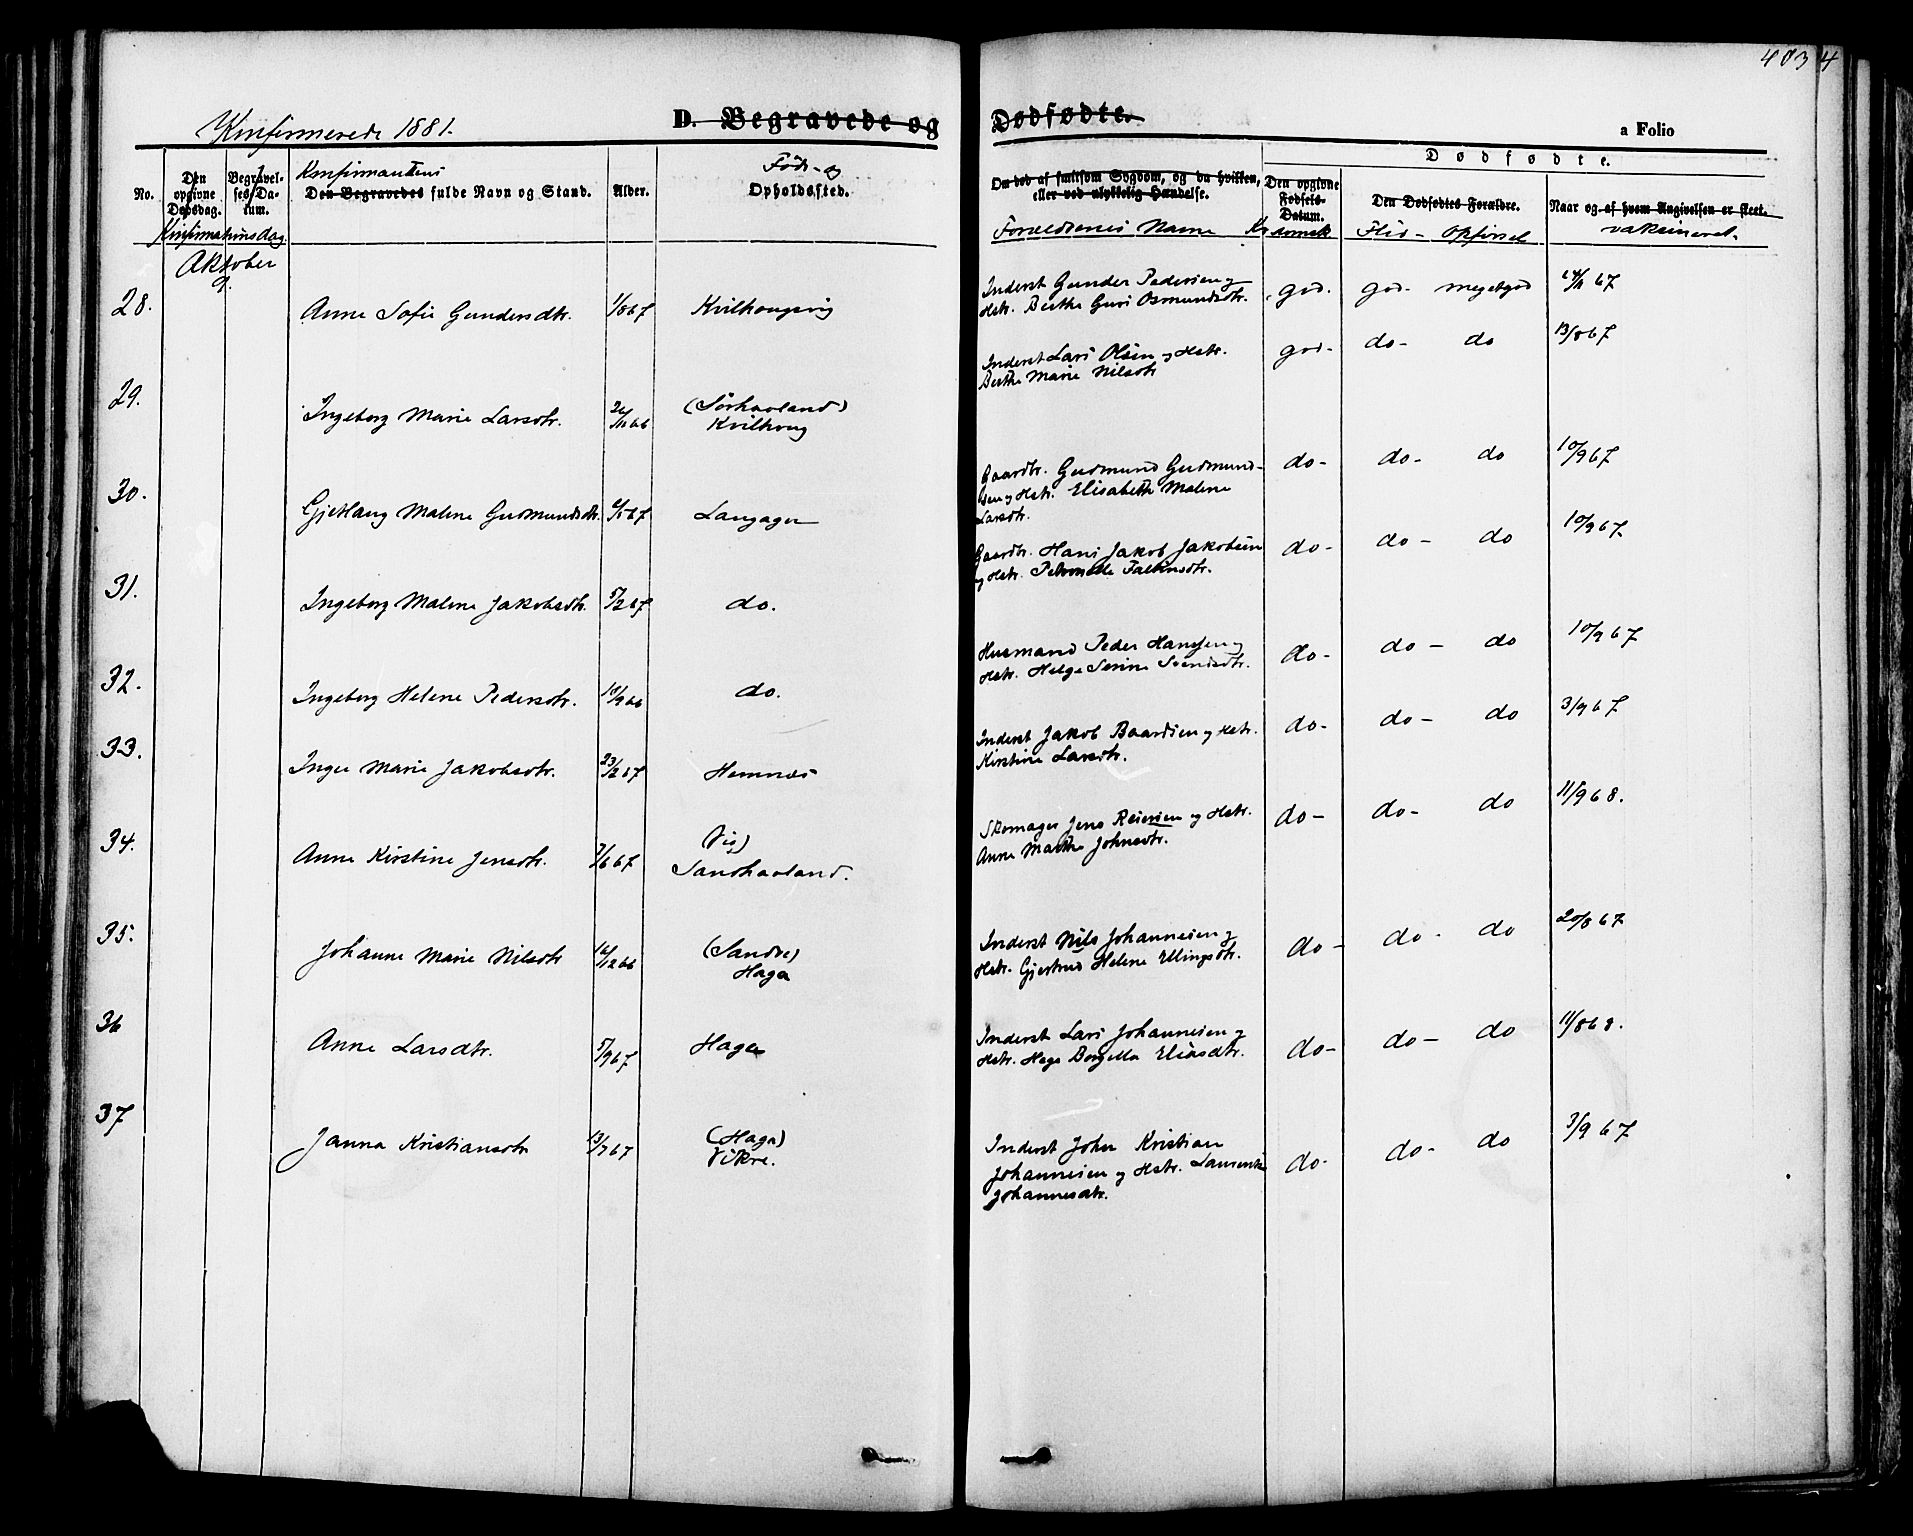 4034
Konfirmerede 1881.
D. Begravede og Dødfødte.
a Folio
No.
Den opgivne Dødsdag.
Begravelses-Datum.
Konfirmationsdag.
Konfirmantens
Den Begravedes fulde Navn og Stand.
Alder.
Føde- og
Opholdssted.
Om død af smitsom Sygdom, og da hvilken,
eller ved ulykkelig Hændelse.
Forældrenes Navne
Den opgivne Fødsels-Datum.
Dødfødte.
Den Dødfødtes Forældre.
Flid - Opførsel
Naar og af hvem Angivelsen er skeet.
vaksineret.
Oktober
9.
28. Anne Sofie Gundersdtr. 1/8 67 Kvilhaugsvig
Inderst Gunder Pedersen og
Hstr. Berthe Guri Osmundsdtr. god. god. megetgod 67
29. Ingeborg Marie Larsdtr. 66 (Sørhaaland)
Kvilhaug
Inderst Lars Olsen og Hstr.
Berthe Marie Nilsdtr god- do- do 13/8 67
30. Malene Gudmundsdtr. 67 Langager
Gaardbr. Gudmund Gudmund-
sen og Hstr. Elisabeth Malene
Larsdtr. do- do- do 10/9 67
31. Ingeborg Malene Jakobsdtr. 5/2 67 do.
Gaardbr. Hans Jakob Jakobsen
og Hstr. Petronelle Falkusdtr. do- do- do 10/9 67
32. Ingeborg Helene Pedersdtr. 10/9 66 do.
Husmand Peder Hansen og
Hstr. Helge Serine Svendsdtr. do- do- do 10/9 67
33. Inger Marie Jakobsdtr. 23/2 67 Hemnæs
Inderst Jakob Baardsen og Hstr.
Kirstine Larsdtr. do- do- do 3/9 67
34. Anne Kirstine Jensdtr. 7/6 67 (Vig)
Sandhaaland.
Skomager Jens Reiersen og Hstr.
Anne Marthe Johnsdtr. do- do- do 11/9 68.
35. Johanne Marie Nilsdtr 16/12 66 (Sandve)
Haga
Inderst Nils Johannesen og
Hstr. Gjertrud Helene Ellingsdtr. do- do- do 20/8 67
36 Anne Larsdtr. 5/9 67 Haga
Inderst Lars Johannesen og
Hstr. Hege Borgella Eliasdtr. do- do- do 11/8 68.
37 Janna Kristiansdtr 13/7 67 (Haga)
Vikre.
Inderst John Kristian
Johannesen og Hstr. Laurentse
Johannesdtr. do- do- do 3/9 67